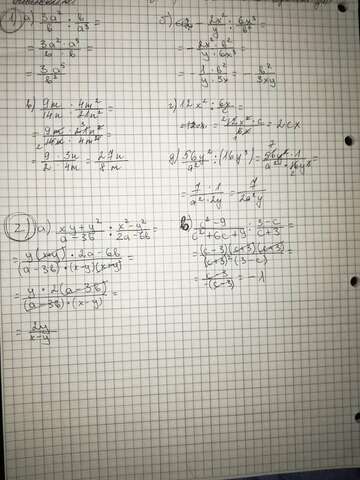 1) а) 3a²/b : b/a³ =
= 3a²·a³/b·b =
= 3a⁵/b²
б) - 2x²/y : 6x³/b² =
= - 2x²·b²/y·6x³ =
= - 1·b²/y·3x = - b²/3xy
в) 9m/14n : 4m²/21n² =
= 9m·21n²/14n·4m² =
= 9·3n/2·4m = 27n/8m
г) 12x² : 6x/c =
= 12x²·c/6x = 2cx
д) 56y²/a² : (16y³) = 56y²·1/a²·16y³ =
= 7·1/a²·2y = 7/2a²y
2) а) xy+y²/a-3b : x²-y²/2a-6b =
= y(x+y)·2a-6b/(a-3b)·(x-y)(x+y) =
= y·2(a-3b)/(a-3b)·(x-y) =
= 2y/x-y
в) c²-9/c²+6c+9 : 3-c/c+3 =
= (c-3)(c+3)(c+3)/(c+3)²(3-c) =
= c-3/-(c-3) = -1